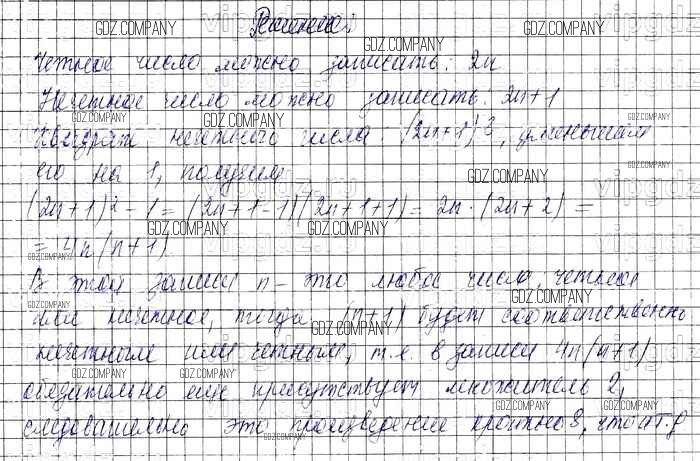 Решение:
Четное число можно записать: 2n
Нечетное число можно записать: 2n+1
Квадрат нечетного числа: (2n+1)², уменьшаем
его на 1, получим
(2n+1)² - 1 = (2n+1-1)(2n+1+1) = 2n·(2n+2) =
= 4n(n+1)
В этой записи n - это любое число, четное
или нечетное, тогда (n+1) будет соответственно
нечетным или четным, т.е. в записи 4n(n+1)
обязательно еще присутствует множитель 2,
следовательно это произведение кратно 8, что и т.д
GDZ.COMPANY
vipgdz.ru